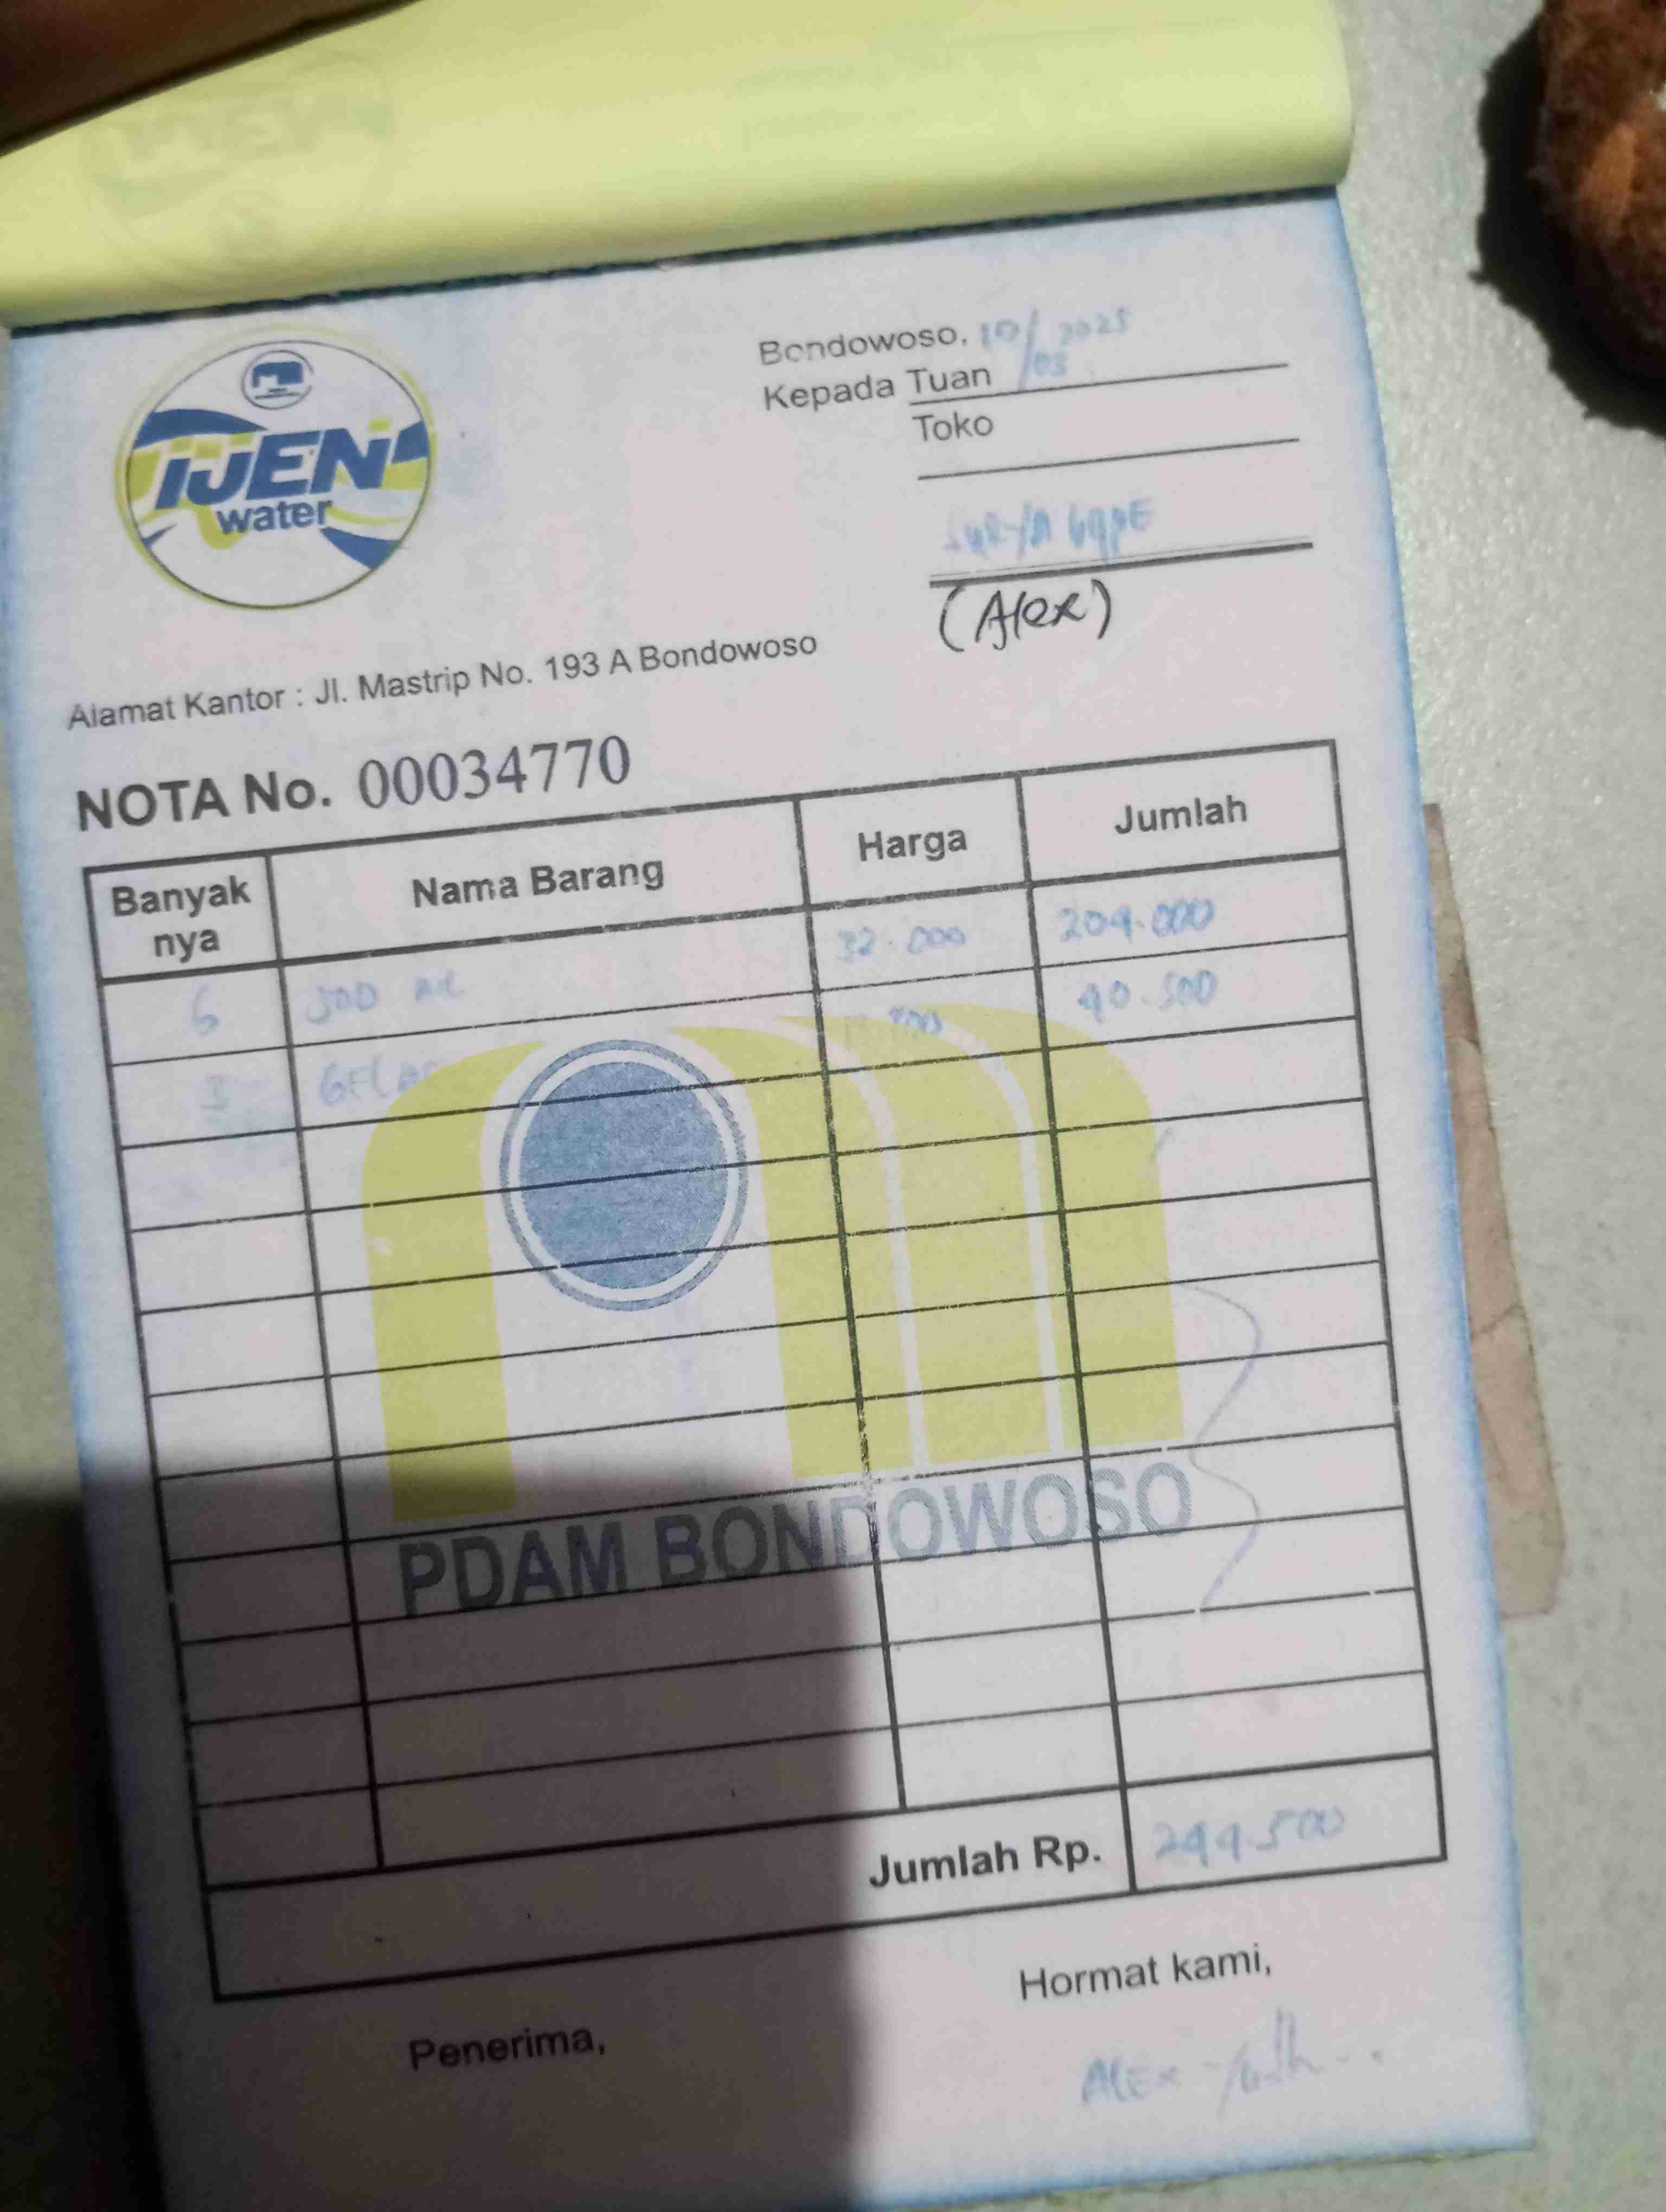 IJEN
water
Bondowoso, 10/05 2025
Kepada Tuan
Toko
(Alex)
Alamat Kantor : Jl. Mastrip No. 193 A Bondowoso
NOTA No. 00034770
Banyak nya Nama Barang Harga Jumlah
6 500 ML 32.000 204.000
3 GELAS 40.500
PDAM BONDOWOSO
Jumlah Rp. 244.500
Penerima, Hormat kami,
ALEX